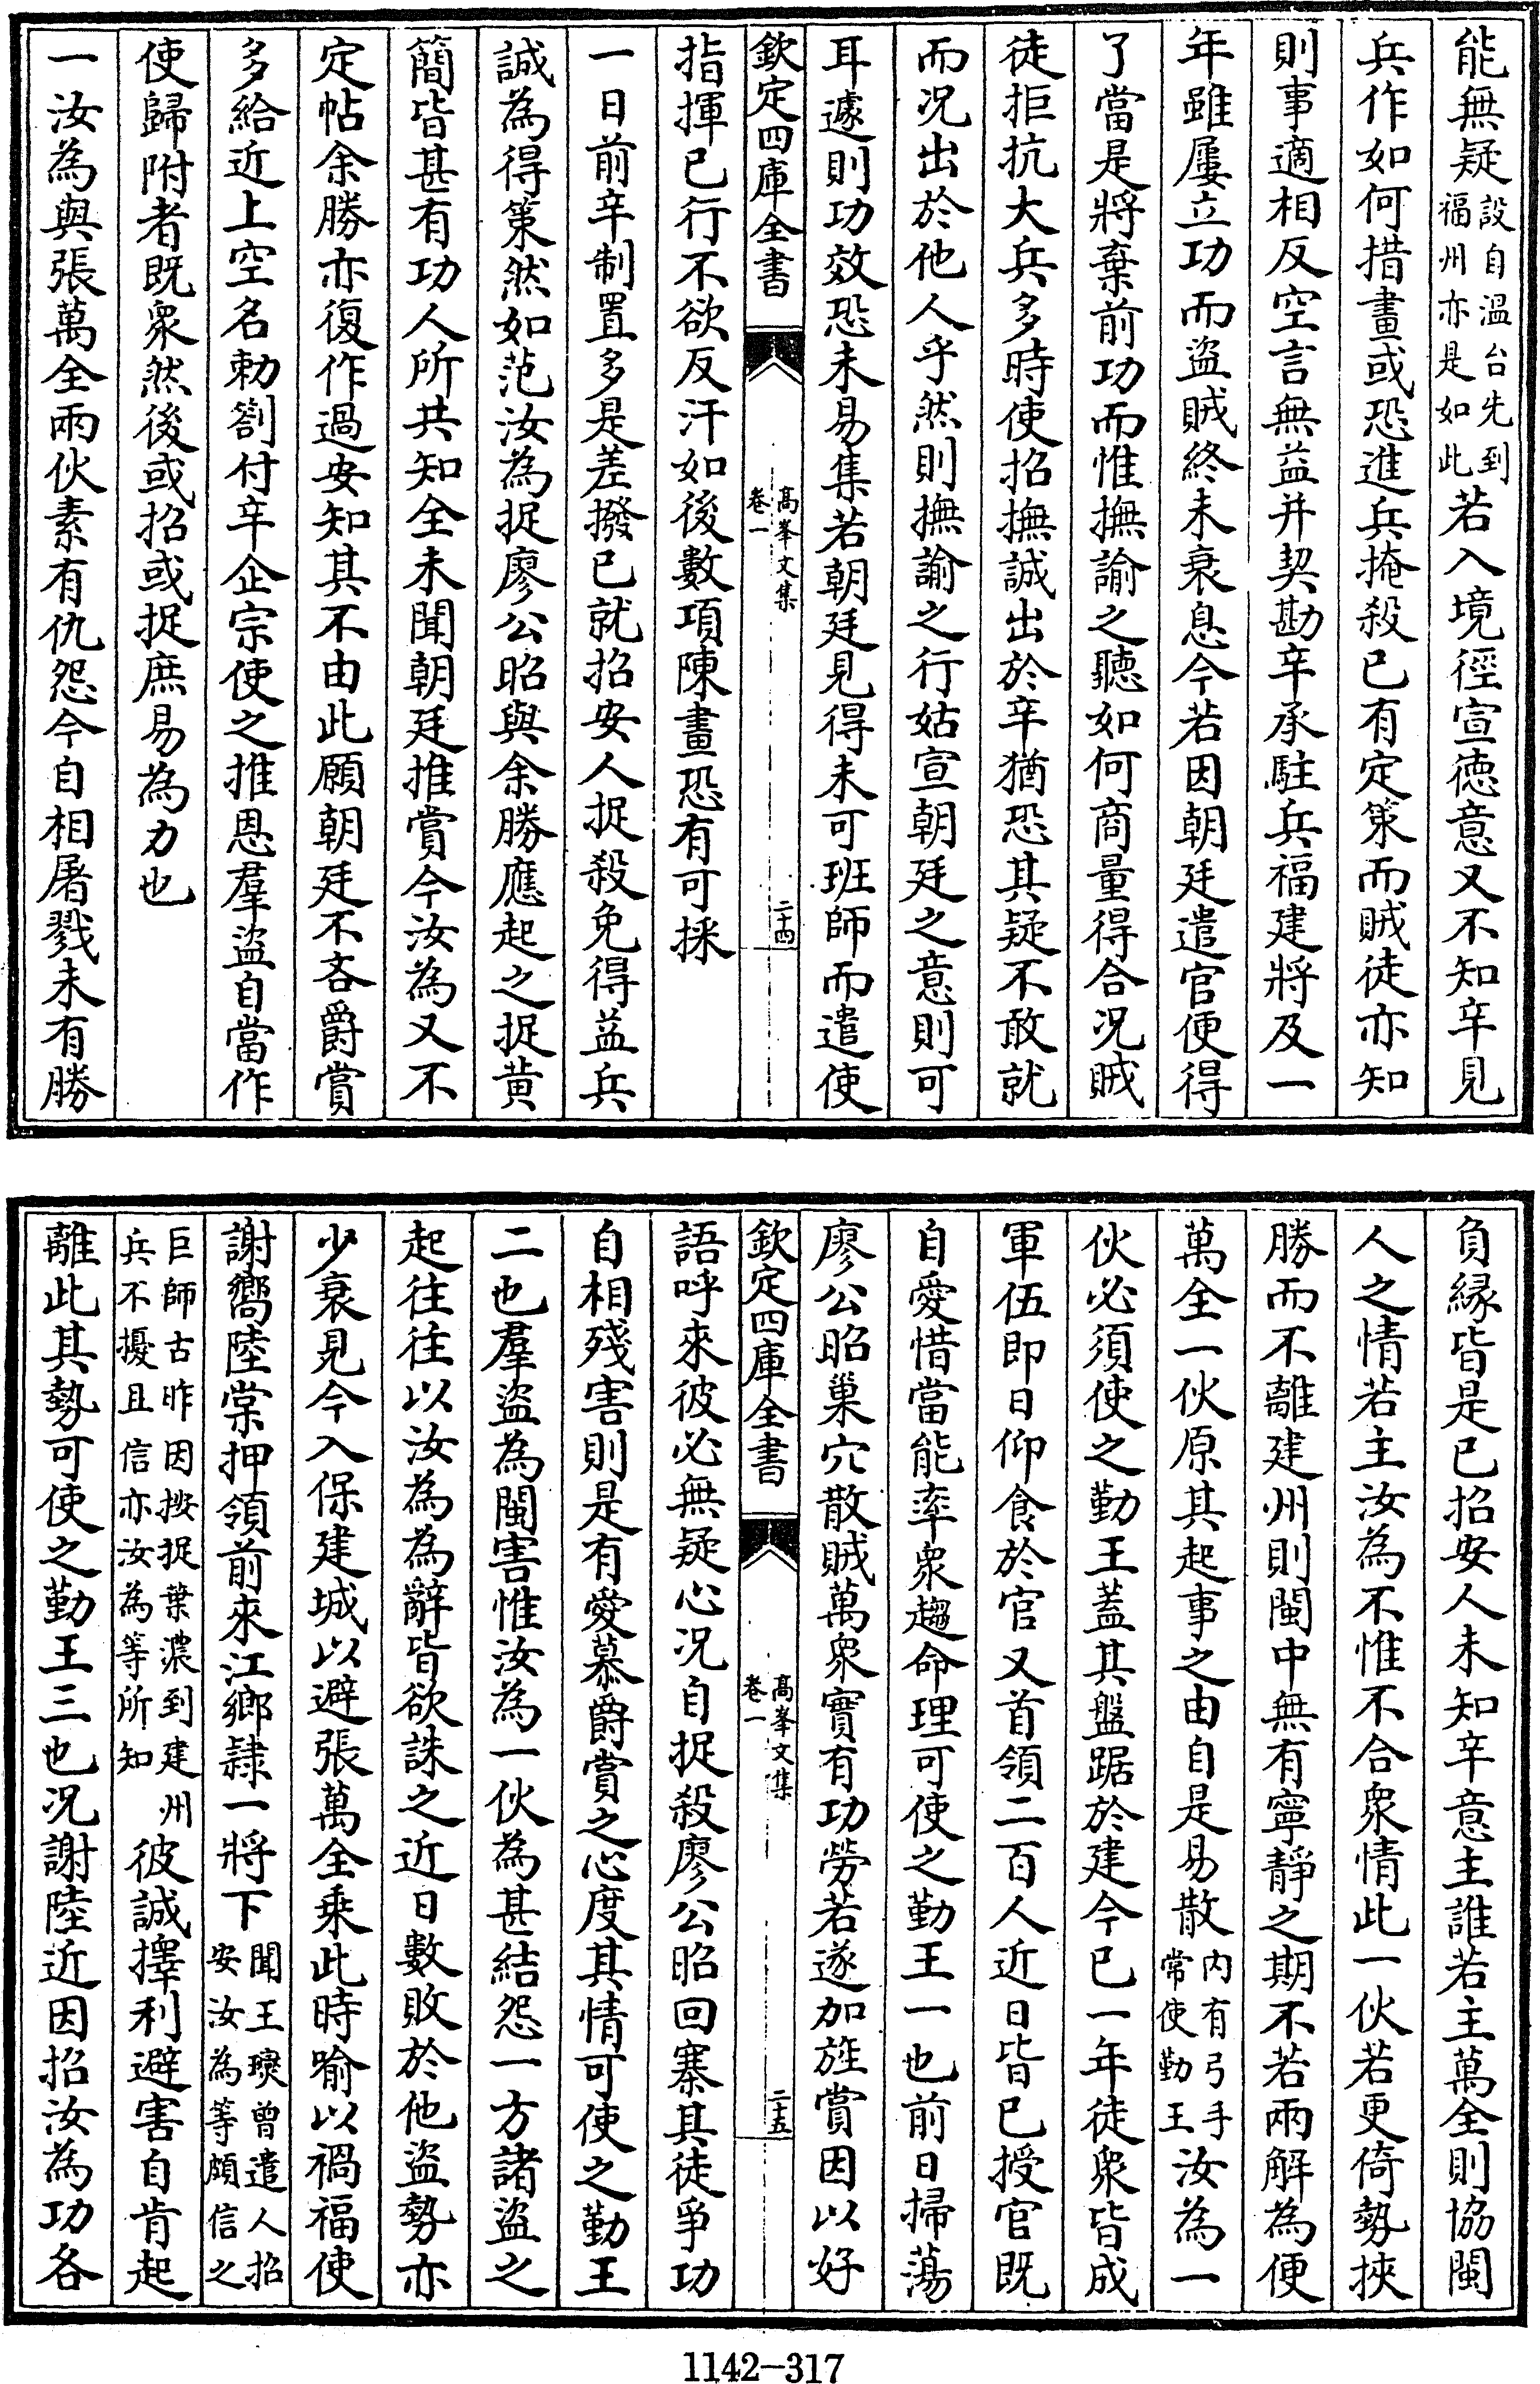 能無疑設自溫台先到福州亦是如此若入境徑宣徳意又不知辛見
兵作如何措畫或恐進兵掩殺已有定策而賊徒亦知
則事適相反空言無益并契勘辛承駐兵福建將及一
年雖屢立功而盜賊終未衰息今若因朝廷遣官便得
了當是將棄前功而惟撫諭之聽如何商量得合况賊
徒拒抗大兵多時使招撫誠出於辛猶恐其疑不敢就
而况出於他人乎然則撫諭之行姑宣朝廷之意則可
耳遽則功效恐未易集若朝廷見得未可班師而遣使
欽定四庫全書
髙峯文集
卷一
二十四
指揮已行不欲反汗如後數項陳畫恐有可採
一日前辛制置多是差撥已就招安人捉殺免得益兵
誠為得策然如范汝為捉廖公昭與余勝應起之捉黄
簡皆甚有功人所共知全未聞朝廷推賞今汝為又不
定帖余勝亦復作過安知其不由此願朝廷不吝爵賞
多給近上空名勅劄付辛企宗使之推恩羣盜自當作
使歸附者既衆然後或招或捉庶易為力也
一汝為與張萬全兩伙素有仇怨今自相屠戮未有勝
負縁皆是已招安人未知辛意主誰若主萬全則協閩
人之情若主汝為不惟不合衆情此一伙若更倚勢挾
勝而不離建州則閩中無有寧靜之期不若兩解為便
萬全一伙原其起事之由自是易散内有弓手常使勤王汝為一
伙必須使之勤王蓋其盤踞於建今已一年徒衆皆成
軍伍即日仰食於官又首領二百人近日皆已授官既
自愛惜當能率衆趨命理可使之勤王一也前日掃蕩
廖公昭巢穴散賊萬衆實有功勞若遂加旌賞因以好
欽定四庫全書
髙峯文集
卷一
二十五
語呼來彼必無疑心况自捉殺廖公昭回寨其徒爭功
自相殘害則是有愛慕爵賞之心度其情可使之勤王
二也羣盜為閩害惟汝為一伙為甚結怨一方諸盜之
起往往以汝為為辭皆欲誅之近日數敗於他盜勢亦
少衰見今入保建城以避張萬全乗此時喻以禍福使
謝嚮陸棠押領前來江鄉隷一將下聞王𤫉曾遣人招安汝為等頗信之
巨師古昨因按捉葉濃到建州兵不擾且信亦汝為等所知彼誠擇利避害自肯起
離此其勢可使之勤王三也况謝陸近因招汝為功各
1142-317